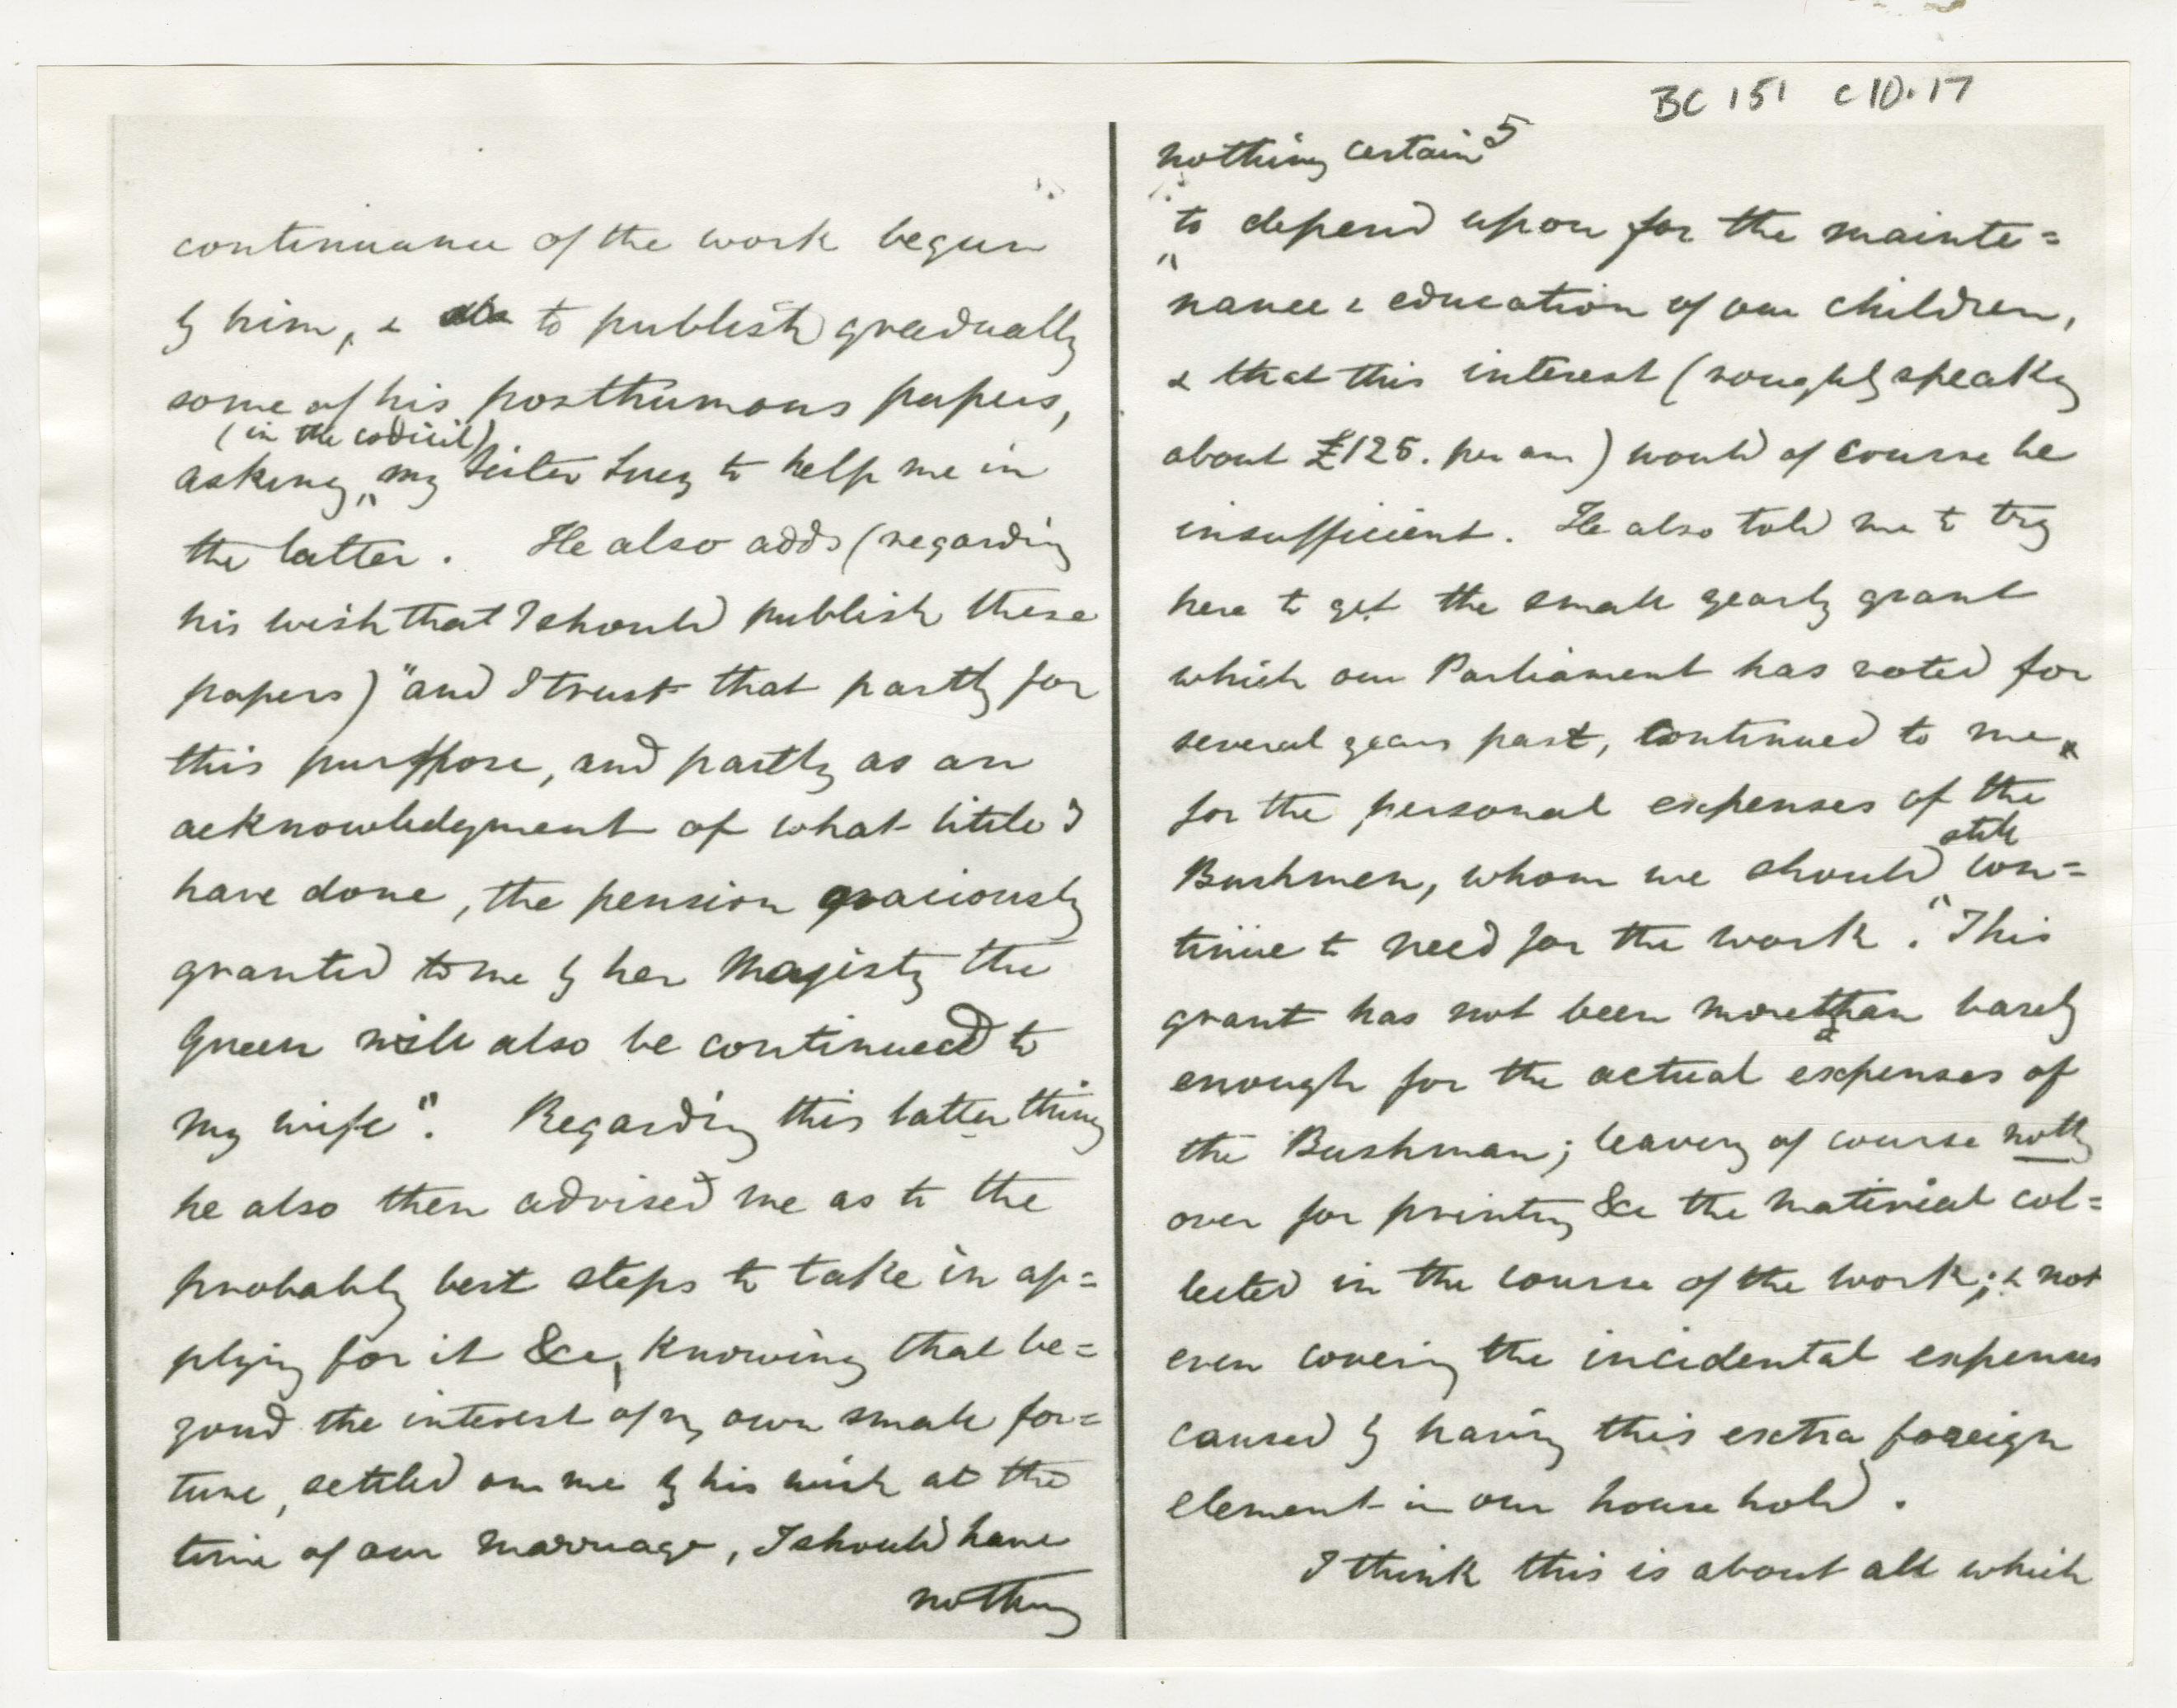 BC 151 C10.17
continuance of the work begun
by him, & to publish gradually
some of his posthumous papers,
(in the codicil)
asking my sister Lucy to help me in
the latter. He also adds (regarding
his wish that I should publish these
papers) "and I trust that partly for
this purpose, and partly as an
acknowledgment of what little I
have done, the pension graciously
granted to me by her Majesty the
Queen will also be continued to
my wife". Regarding this latter thing
he also then advised me as to the
probably best steps to take in ap=
plying for it &c, knowing that be=
yond the interest of my own small for=
tune, settled on me by his wish at the
time of our marriage, I should have
nothing
5
nothing certain
to depend upon for the mainte=
nance & education of our children,
& that this interest (roughly speaking
about £125. per an) would of course be
insufficient. He also told me to try
here to get the small yearly grant
which our Parliament has voted for
several years past, continued to me,
for the personal expenses of the
still
Bushmen, whom we should con=
tinue to need for the work. This
grant has not been more than barely
enough for the actual expenses of
the Bushman; leaving of course nothg
over for printing &c the material col=
lected in the course of the work; & not
even covering the incidental expenses
caused by having this extra foreign
element in our household.
I think this is about all which